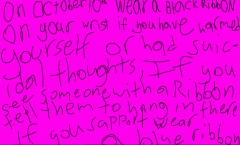 On October 10th wear a Black Ribbon
On your wrist if you have harmed
yourself or had suic-
idal thoughts, If you
see someone with a Ribbon
tell them to hang in there
If you support wear
a blue ribbon